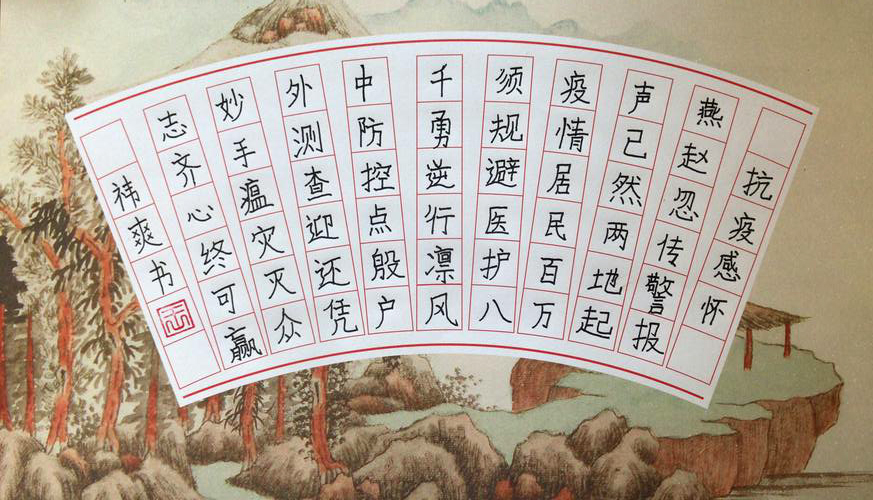 抗疫感怀
燕赵忍传警报
声己然两地起
疫情居民百万
须规避医护八
千勇逆行凛风
中防控点殷户
外测查迎还凭
妙手瘟灾灭众
志齐心终可赢
祎爽书